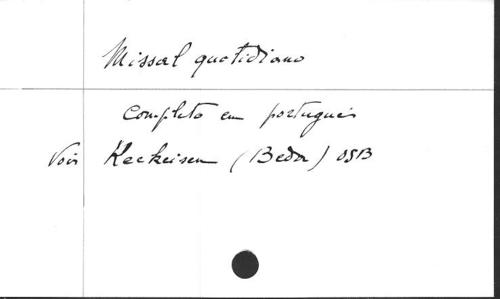 Missal quotidiano
completo em português
Voir Keckeisen (Beda) OSB